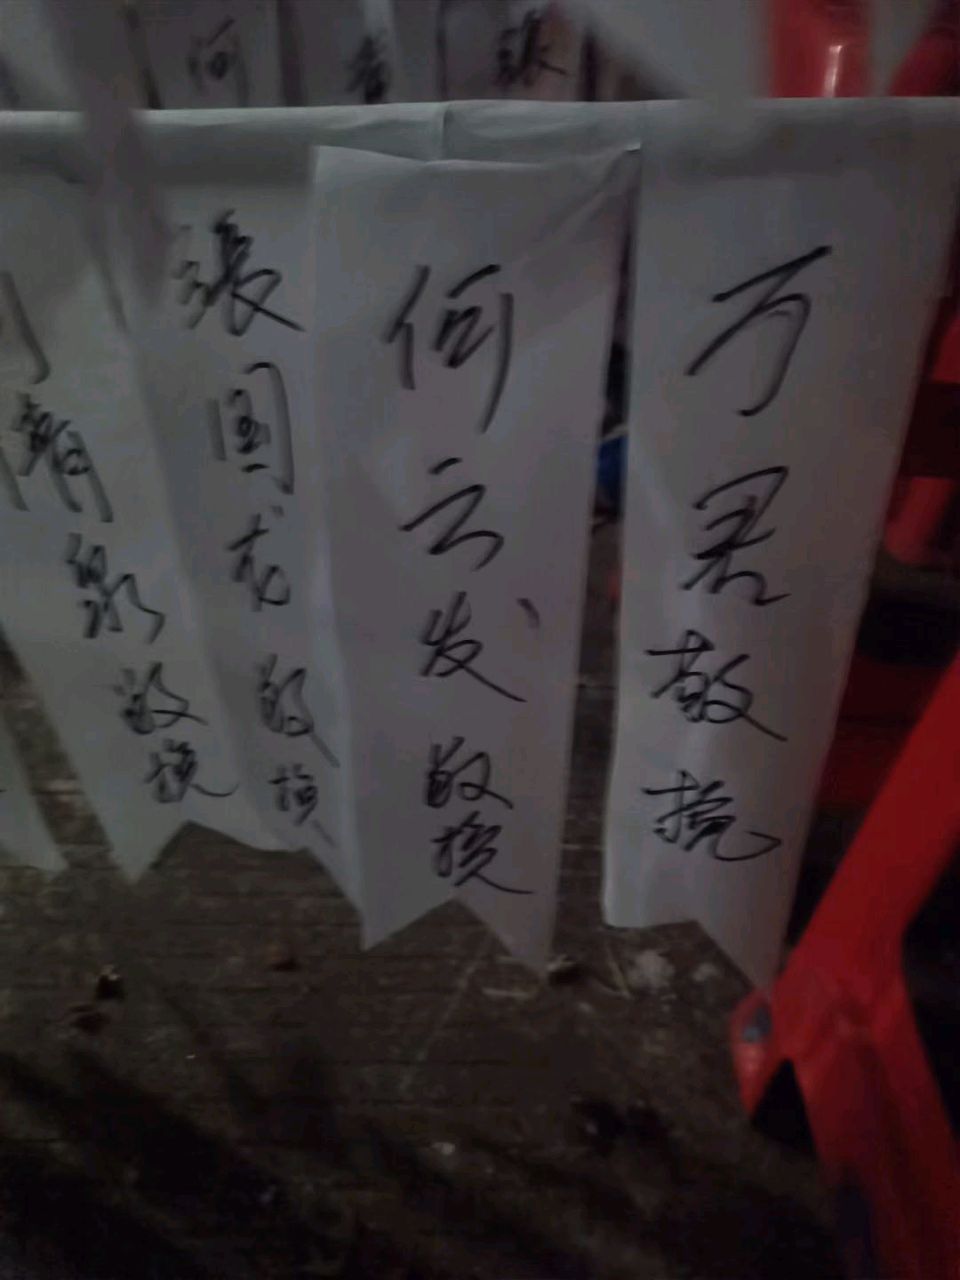 何
張
万君敬挽
何云发敬挽
張国龙敬挽
清泉敬挽